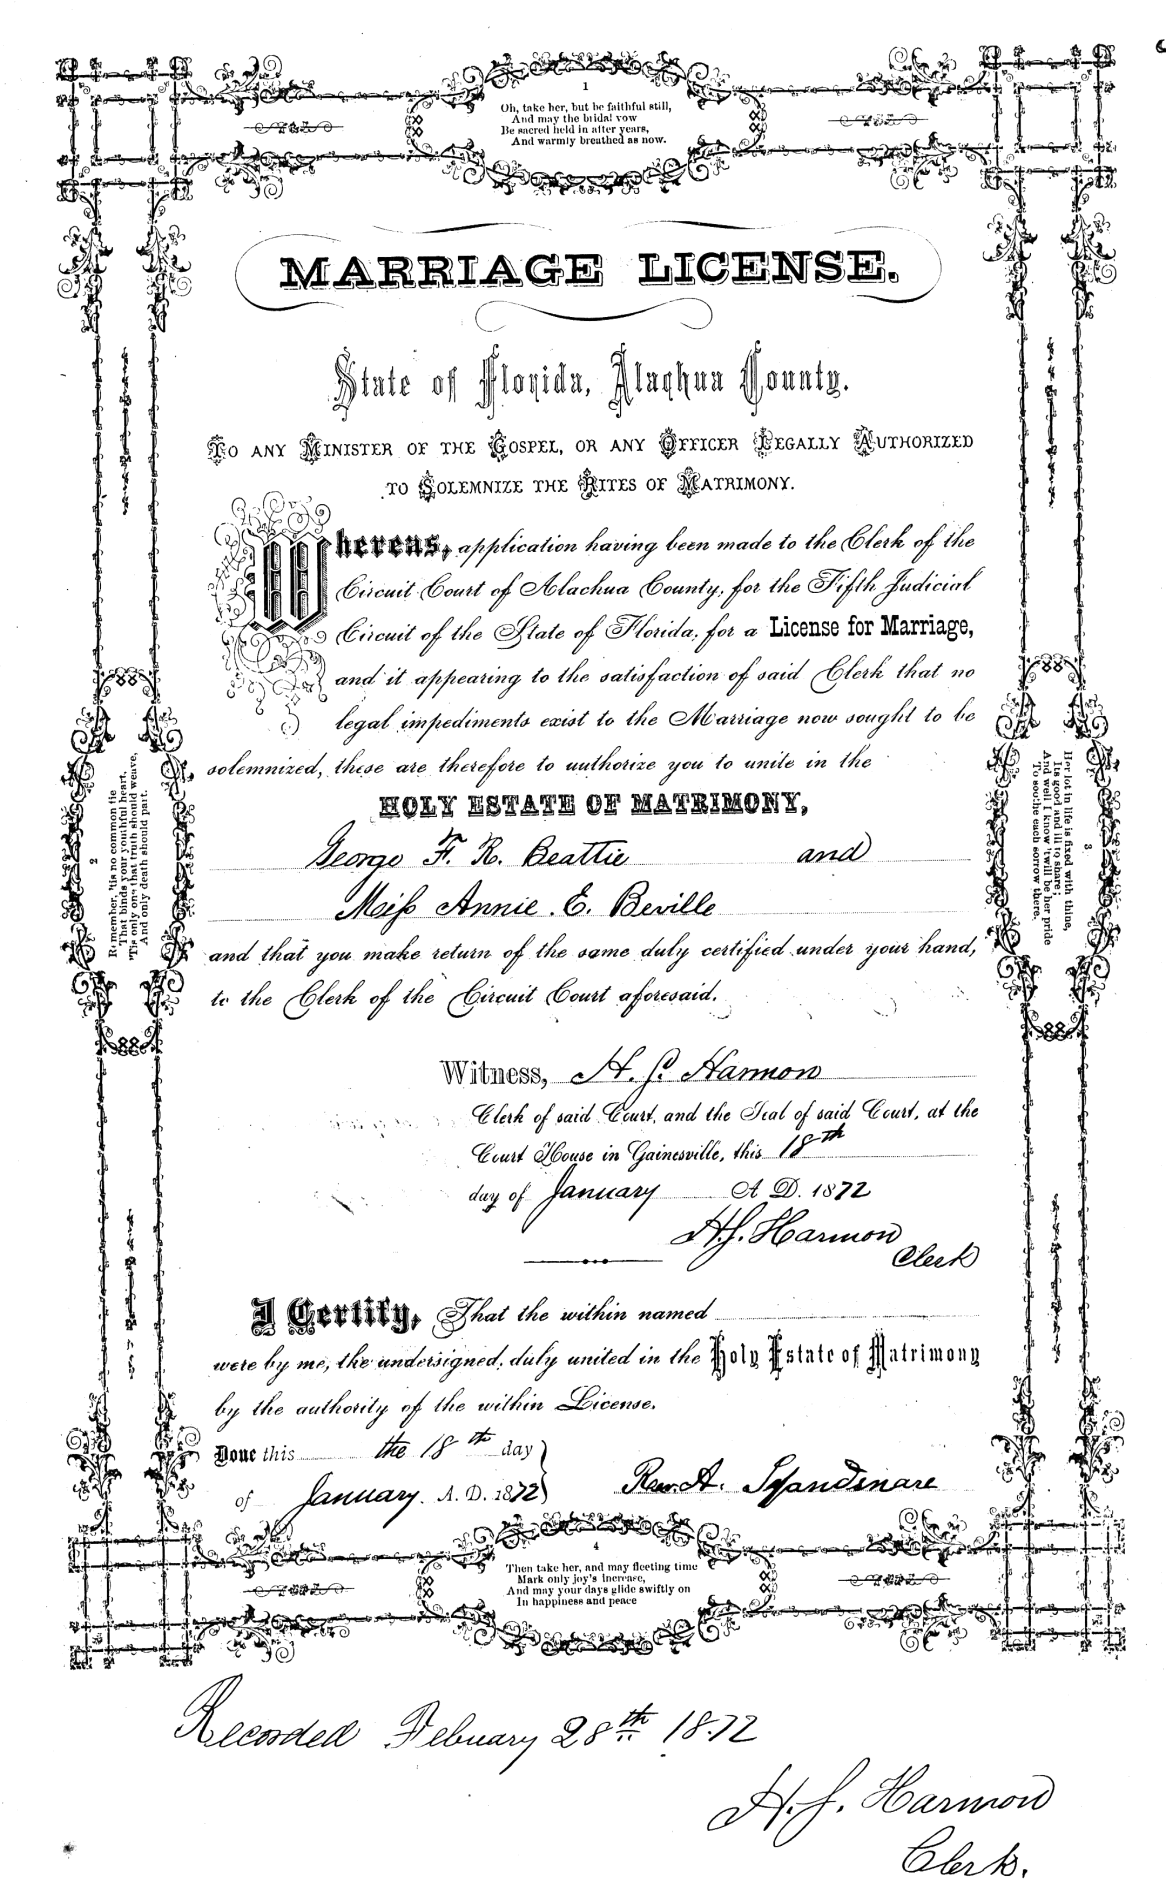 1
Oh, take her, but be faithful still,
And may the bridal vow
Be sacred held in after years,
And warmly breathed as now.
MARRIAGE LICENSE.
State of Florida, Alachua County.
TO ANY MINISTER OF THE GOSPEL, OR ANY OFFICER LEGALLY AUTHORIZED
TO SOLEMNIZE THE RITES OF MATRIMONY.
Whereas, application having been made to the Clerk of the
Circuit Court of Alachua County, for the Fifth Judicial
Circuit of the State of Florida, for a License for Marriage,
and it appearing to the satisfaction of said Clerk that no
legal impediments exist to the Marriage now sought to be
solemnized, these are therefore to authorize you to unite in the
HOLY ESTATE OF MATRIMONY,
George F. R. Beattie and
Miss Annie E. Beville
and that you make return of the same duly certified under your hand,
to the Clerk of the Circuit Court aforesaid.
2
Remember, 'tis no common tie
That binds your youthful heart,
'Tis only one that truth should weave,
And only death should part.
3
Her lot in life is fixed with thine,
Its good and ill to share;
And well I know 'twill be her pride
To soothe each sorrow there.
Witness, H. S. Harmon
Clerk of said Court, and the Seal of said Court, at the
Court House in Gainesville, this 18th
day of January A. D. 1872
H. S. Harmon
Clerk
I Certify, That the within named
were by me, the undersigned, duly united in the Holy Estate of Matrimony
by the authority of the within License.
Done this the 18th day
of January. A. D. 1872
Rev. A.
4
Then take her, and may fleeting time
Mark only joy's increase,
And may your days glide swiftly on
In happiness and peace
Recorded Febuary 28th 1872
H. S. Harmon
Clerk.